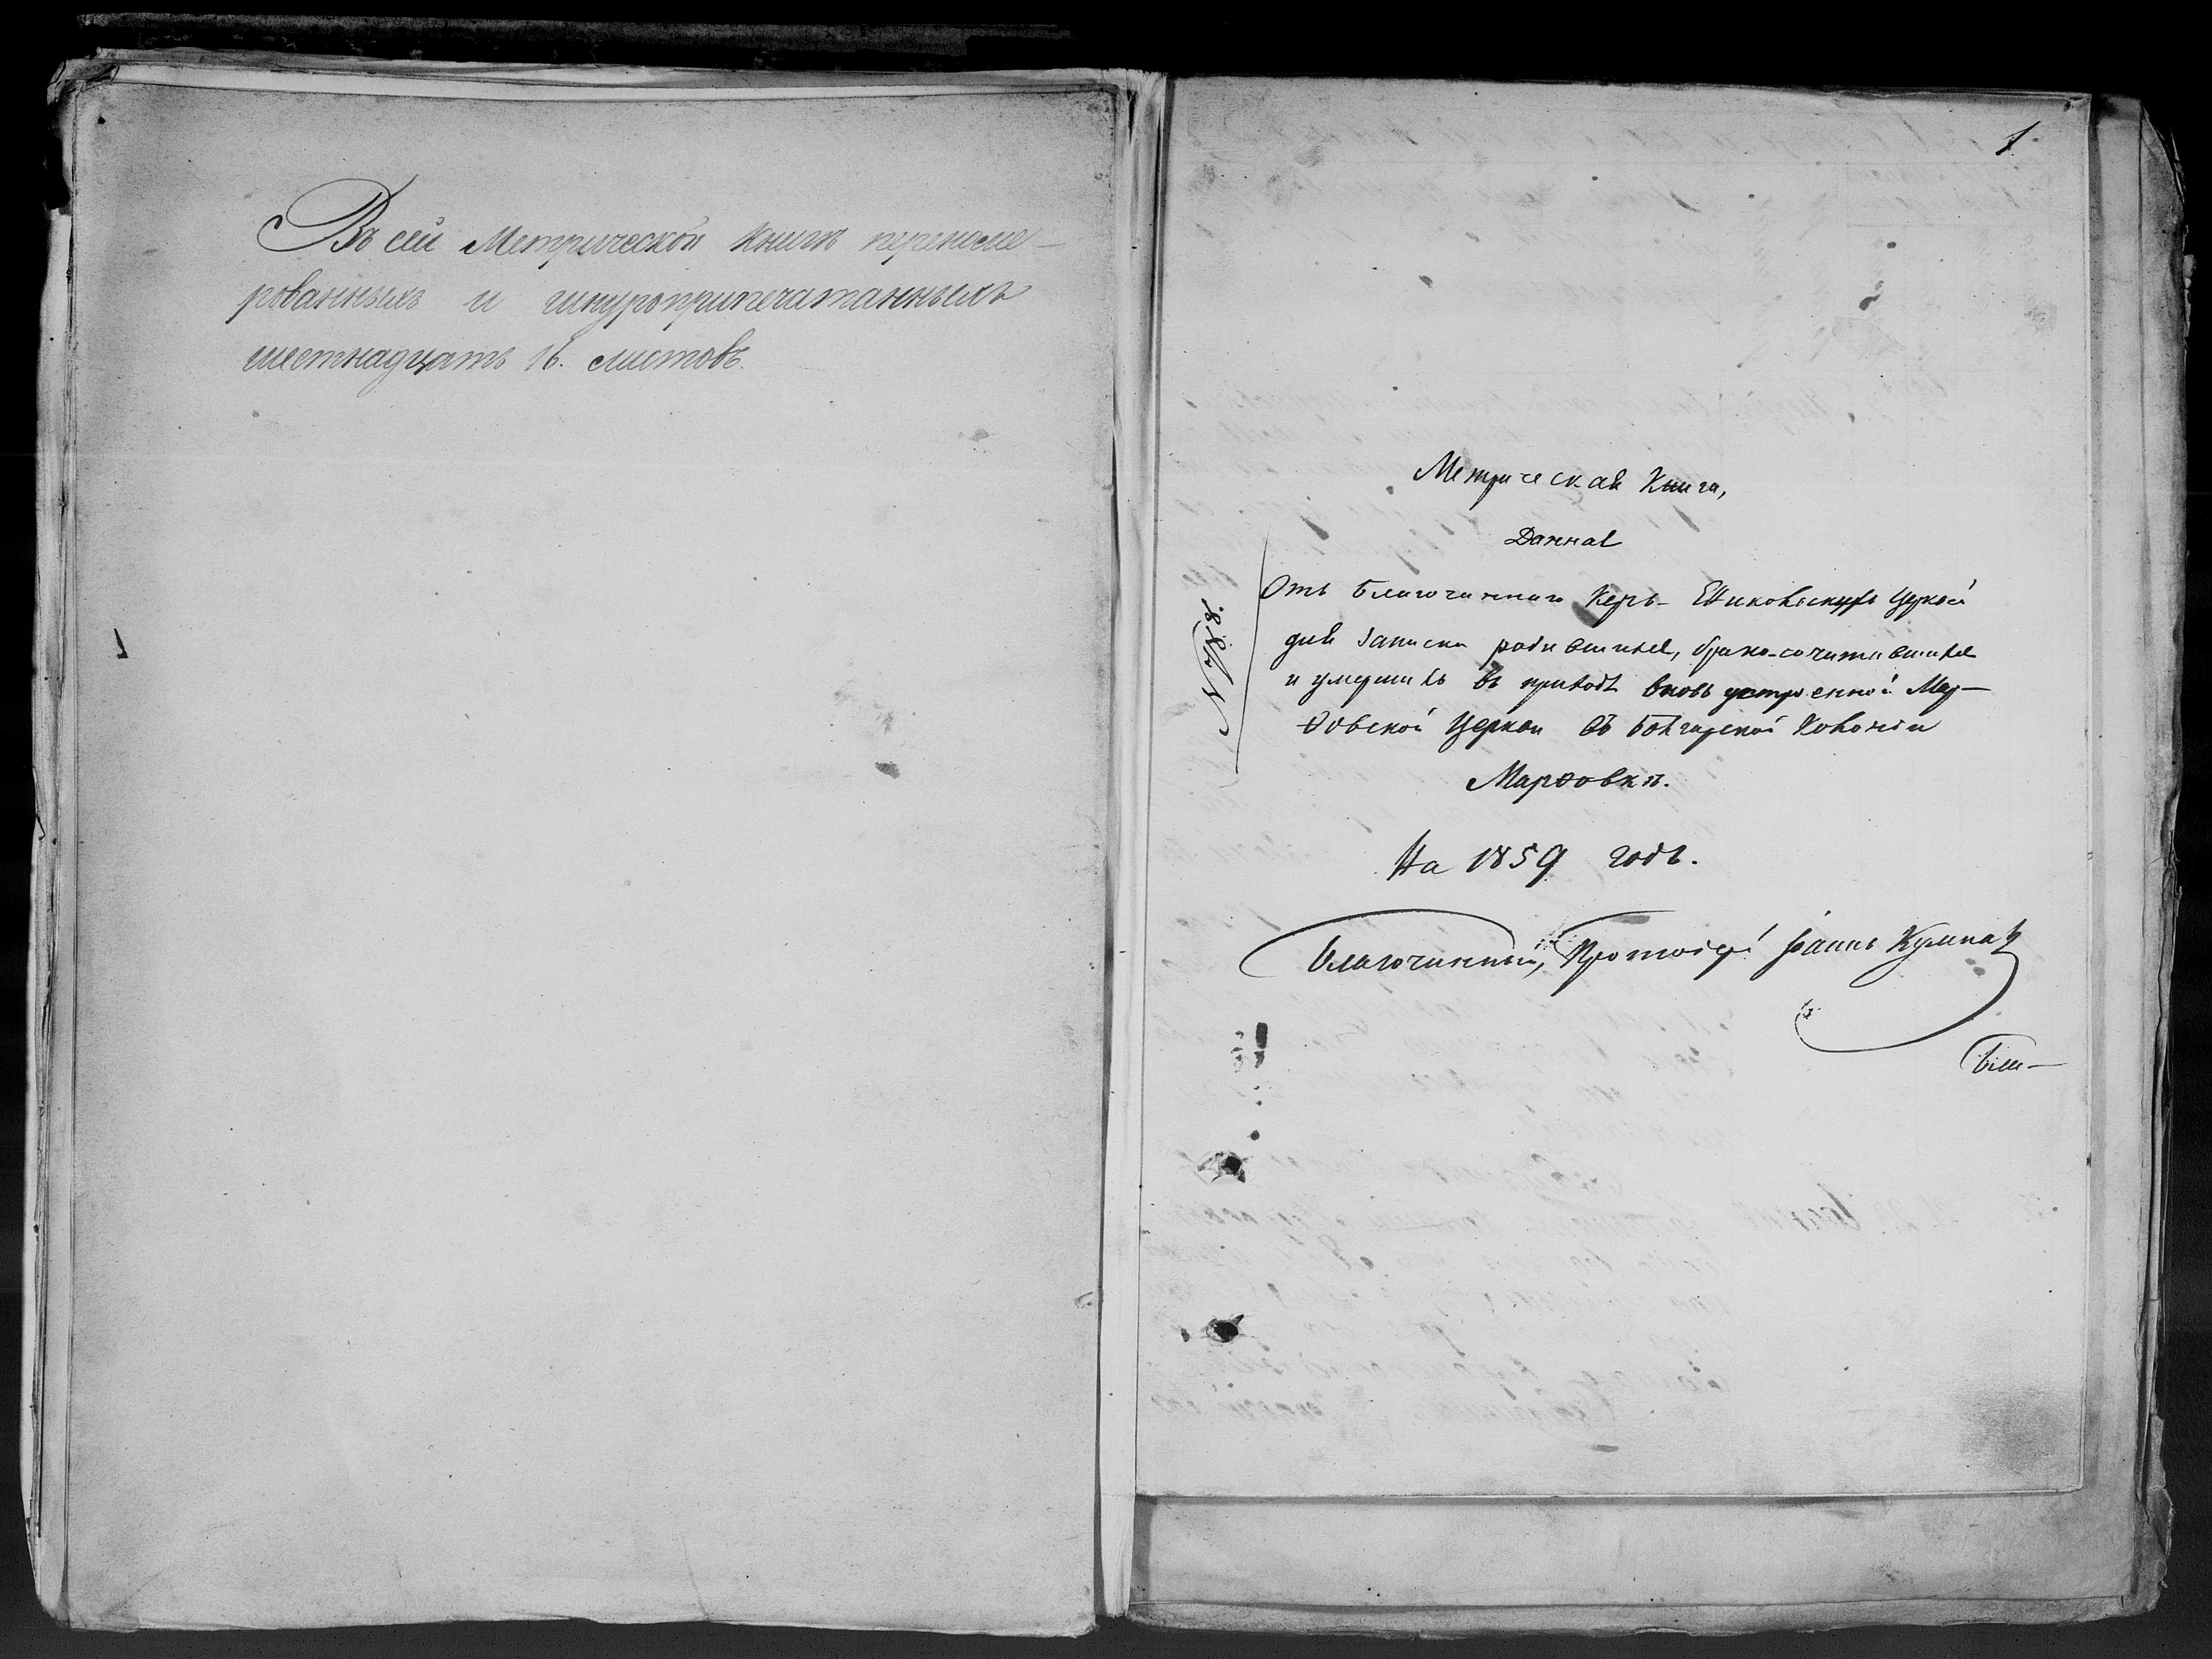 Въ сей Метрической книгѣ перенуме-
рованныхъ и шнуроприпечатанныхъ
шестнадцать 16. листовъ.
1
Метрическая Книга,
Данная
Отъ Благочиннаго Керчь-Ениковскихъ Церквей
для записки родившихся, брако-сочитавшихся
и умершихъ въ приходѣ вновь устроенной Мар-
ѳовской Церкви въ Болгарской Колоніи
Марѳовкѣ.
На 1859 годъ.
Благочинный, Протоіерей Іоаннъ
Бла-
№ 88.